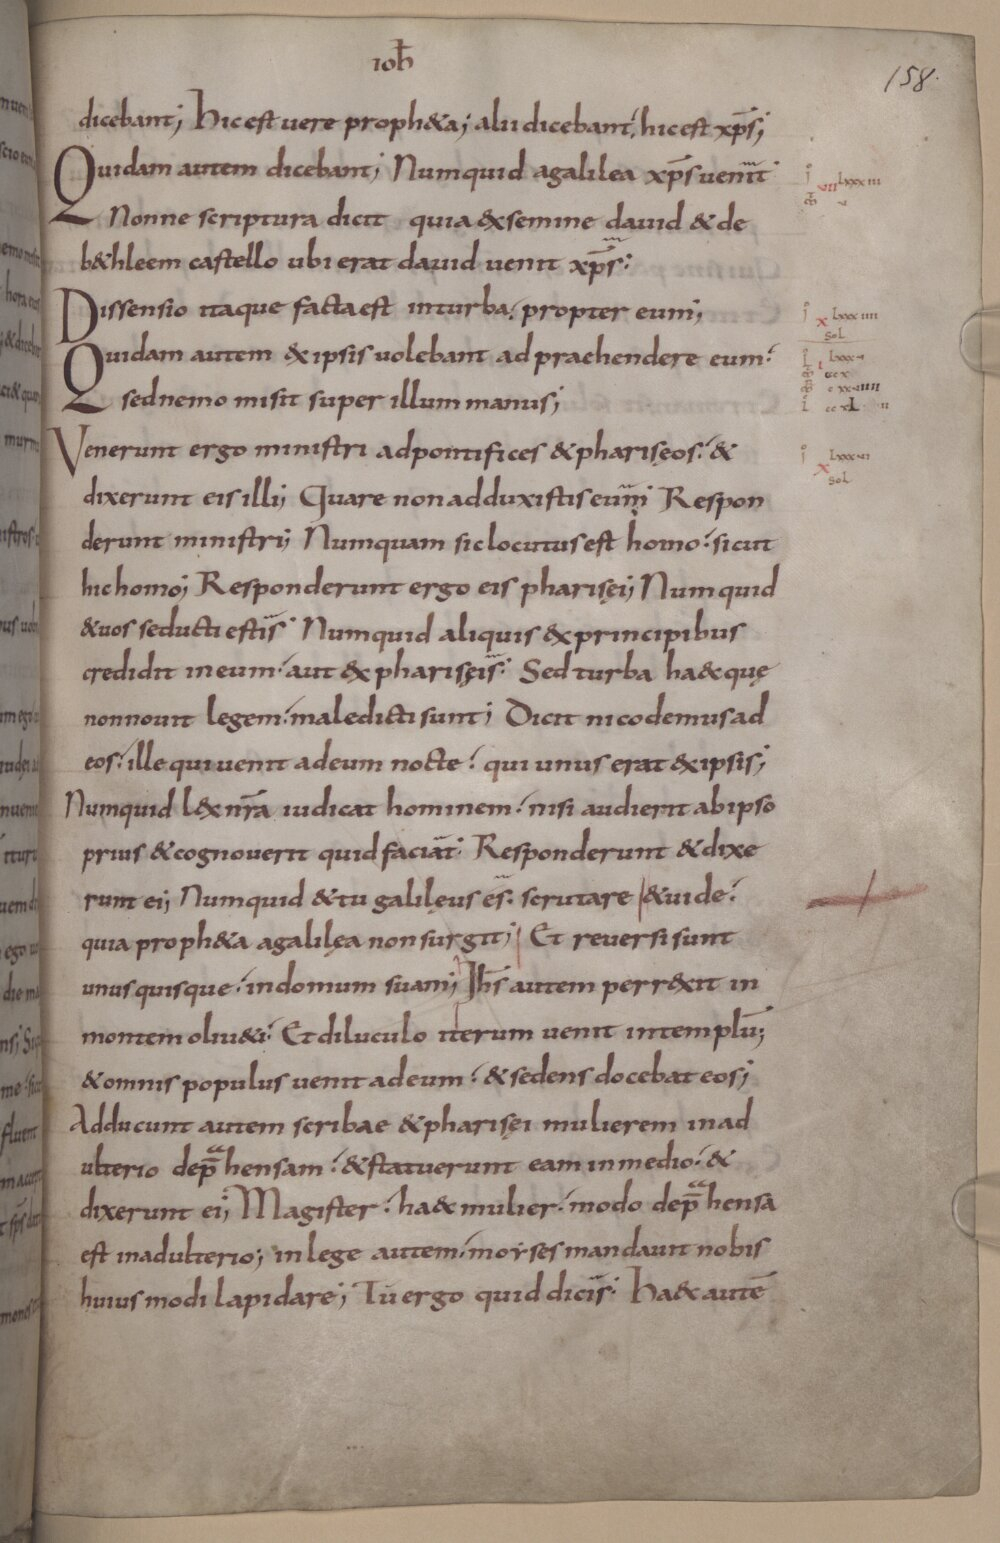 ioħ
158.
dicebant; Hic est uere proph&a; alii dicebant; hic est xp̄s;
Quidam autem dicebant; Numquid a galilea xp̄s uenit
Nonne scriptura dicit quia &x semine dauid & de
b&hleem castello ubi erat dauid uenit xp̄s:
Dissensio itaque facta est in turba; propter eum;
Quidam autem &x ipsis uolebant adpraehendere eum:
sed nemo misit super illum manus;
Venerunt ergo ministri ad pontifices & pharisęos: &
dixerunt eis illi; Quare non adduxistis eum; Respon
derunt ministri; Numquam sic locutus est homo: sicut
hic homo; Responderunt ergo eis pharisęi; Numquid
& uos seducti estis: Numquid aliquis &x principibus
credidit in eum: aut &x pharisęis: Sed turba haec quę
non nouit legem: maledicti sunt; Dicit nicodemus ad
eos: ille qui uenit ad eum nocte: qui unus erat &x ipsis;
Numquid lex nr̄a iudicat hominem: nisi audierit ab ipso
prius & cognouerit quid faciat: Responderunt & dixe
runt ei; Numquid & tu galilęus es: scrutare & uide:
quia proph&a a galilęa non surgit; Et reuersi sunt
unusquisque: in domum suam; Ih̄s autem perrexit in
montem oliu&i: Et diluculo iterum uenit in templū;
& omnis populus uenit ad eum: & sedens docebat eos;
Adducunt autem scribae & pharisęi mulierem in ad
ulterio dep̄hensam: & statuerunt eam in medio: &
dixerunt ei; Magister: haec mulier: modo dep̄hensa
est in adulterio; in lege autem: moyses mandauit nobis
huiusmodi lapidare; Tu ergo quid dicis: Haec autē